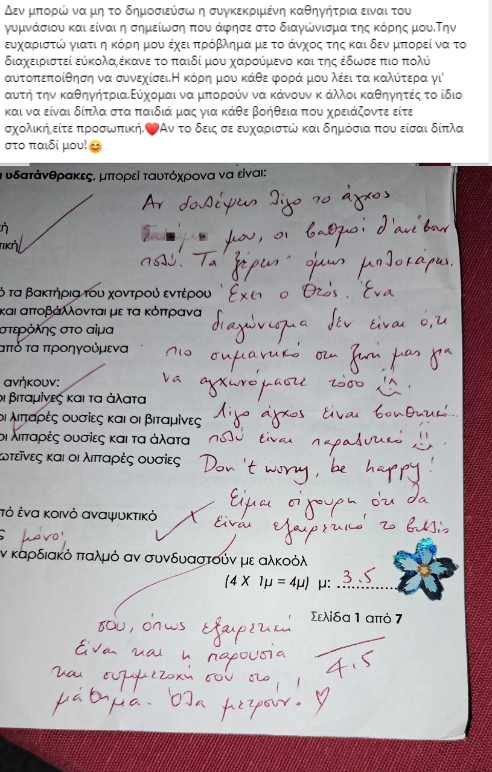 Δεν μπορώ να μη το δημοσιεύσω η συγκεκριμένη καθηγήτρια ειναι του
γυμνάσιου και είναι η σημείωση που άφησε στο διαγώνισμα της κόρης μου.Την
ευχαριστώ γιατι η κόρη μου έχει πρόβλημα με το άνχος της και δεν μπορεί να το
διαχειριστεί εύκολα,έκανε το παιδί μου χαρούμενο και της έδωσε πιο πολύ
αυτοπεποίθηση να συνεχίσει.Η κόρη μου κάθε φορά μου λέει τα καλύτερα γι'
αυτή την καθηγήτρια.Εύχομαι να μπορούν να κάνουν κ άλλοι καθηγητές το ίδιο
και να είναι δίπλα στα παιδιά μας για κάθε βοήθεια που χρειάζοντε είτε
σχολική,είτε προσωπική.❤️Αν το δεις σε ευχαριστώ και δημόσια που είσαι δίπλα
στο παιδί μου!😊
υδατάνθρακες, μπορεί ταυτόχρονα να είναι:
Αν δουλέψεις λίγο το άγχος
μου, οι βαθμοί θ'ανέβουν
πολύ. Τα ξέρεις όμως μπλοκάρεις.
ό τα βακτήρια του χοντρού εντέρου
Έχει ο Θεός. Ένα
και αποβάλλονται με τα κόπρανα
διαγώνισμα δεν είναι ό,τι
στερόλης στο αίμα
από τα προηγούμενα
πιο σημαντικό στη ζωή μας για
να αγχωνόμαστε τόσο
ανήκουν:
οι βιταμίνες και τα άλατα
οι λιπαρές ουσίες και οι βιταμίνες
Λίγο άγχος είναι βοηθητικό...
οι λιπαρές ουσίες και τα άλατα
πολύ είναι παραλυτικό
ωτεΐνες και οι λιπαρές ουσίες
Don't worry, be happy!
Είμαι σίγουρη ότι θα
πό ένα κοινό αναψυκτικό
είναι εξαιρετικό το βιβλίο
μόνο,
ν καρδιακό παλμό αν συνδυαστούν με αλκοόλ
(4 Χ 1μ = 4μ) μ: 3.5
Σελίδα 1 από 7
σου, όπως εξαιρετική
είναι και η παρουσία
4.5
και συμμετοχή σου στο
μάθημα. Όλα μετρούν! ♡